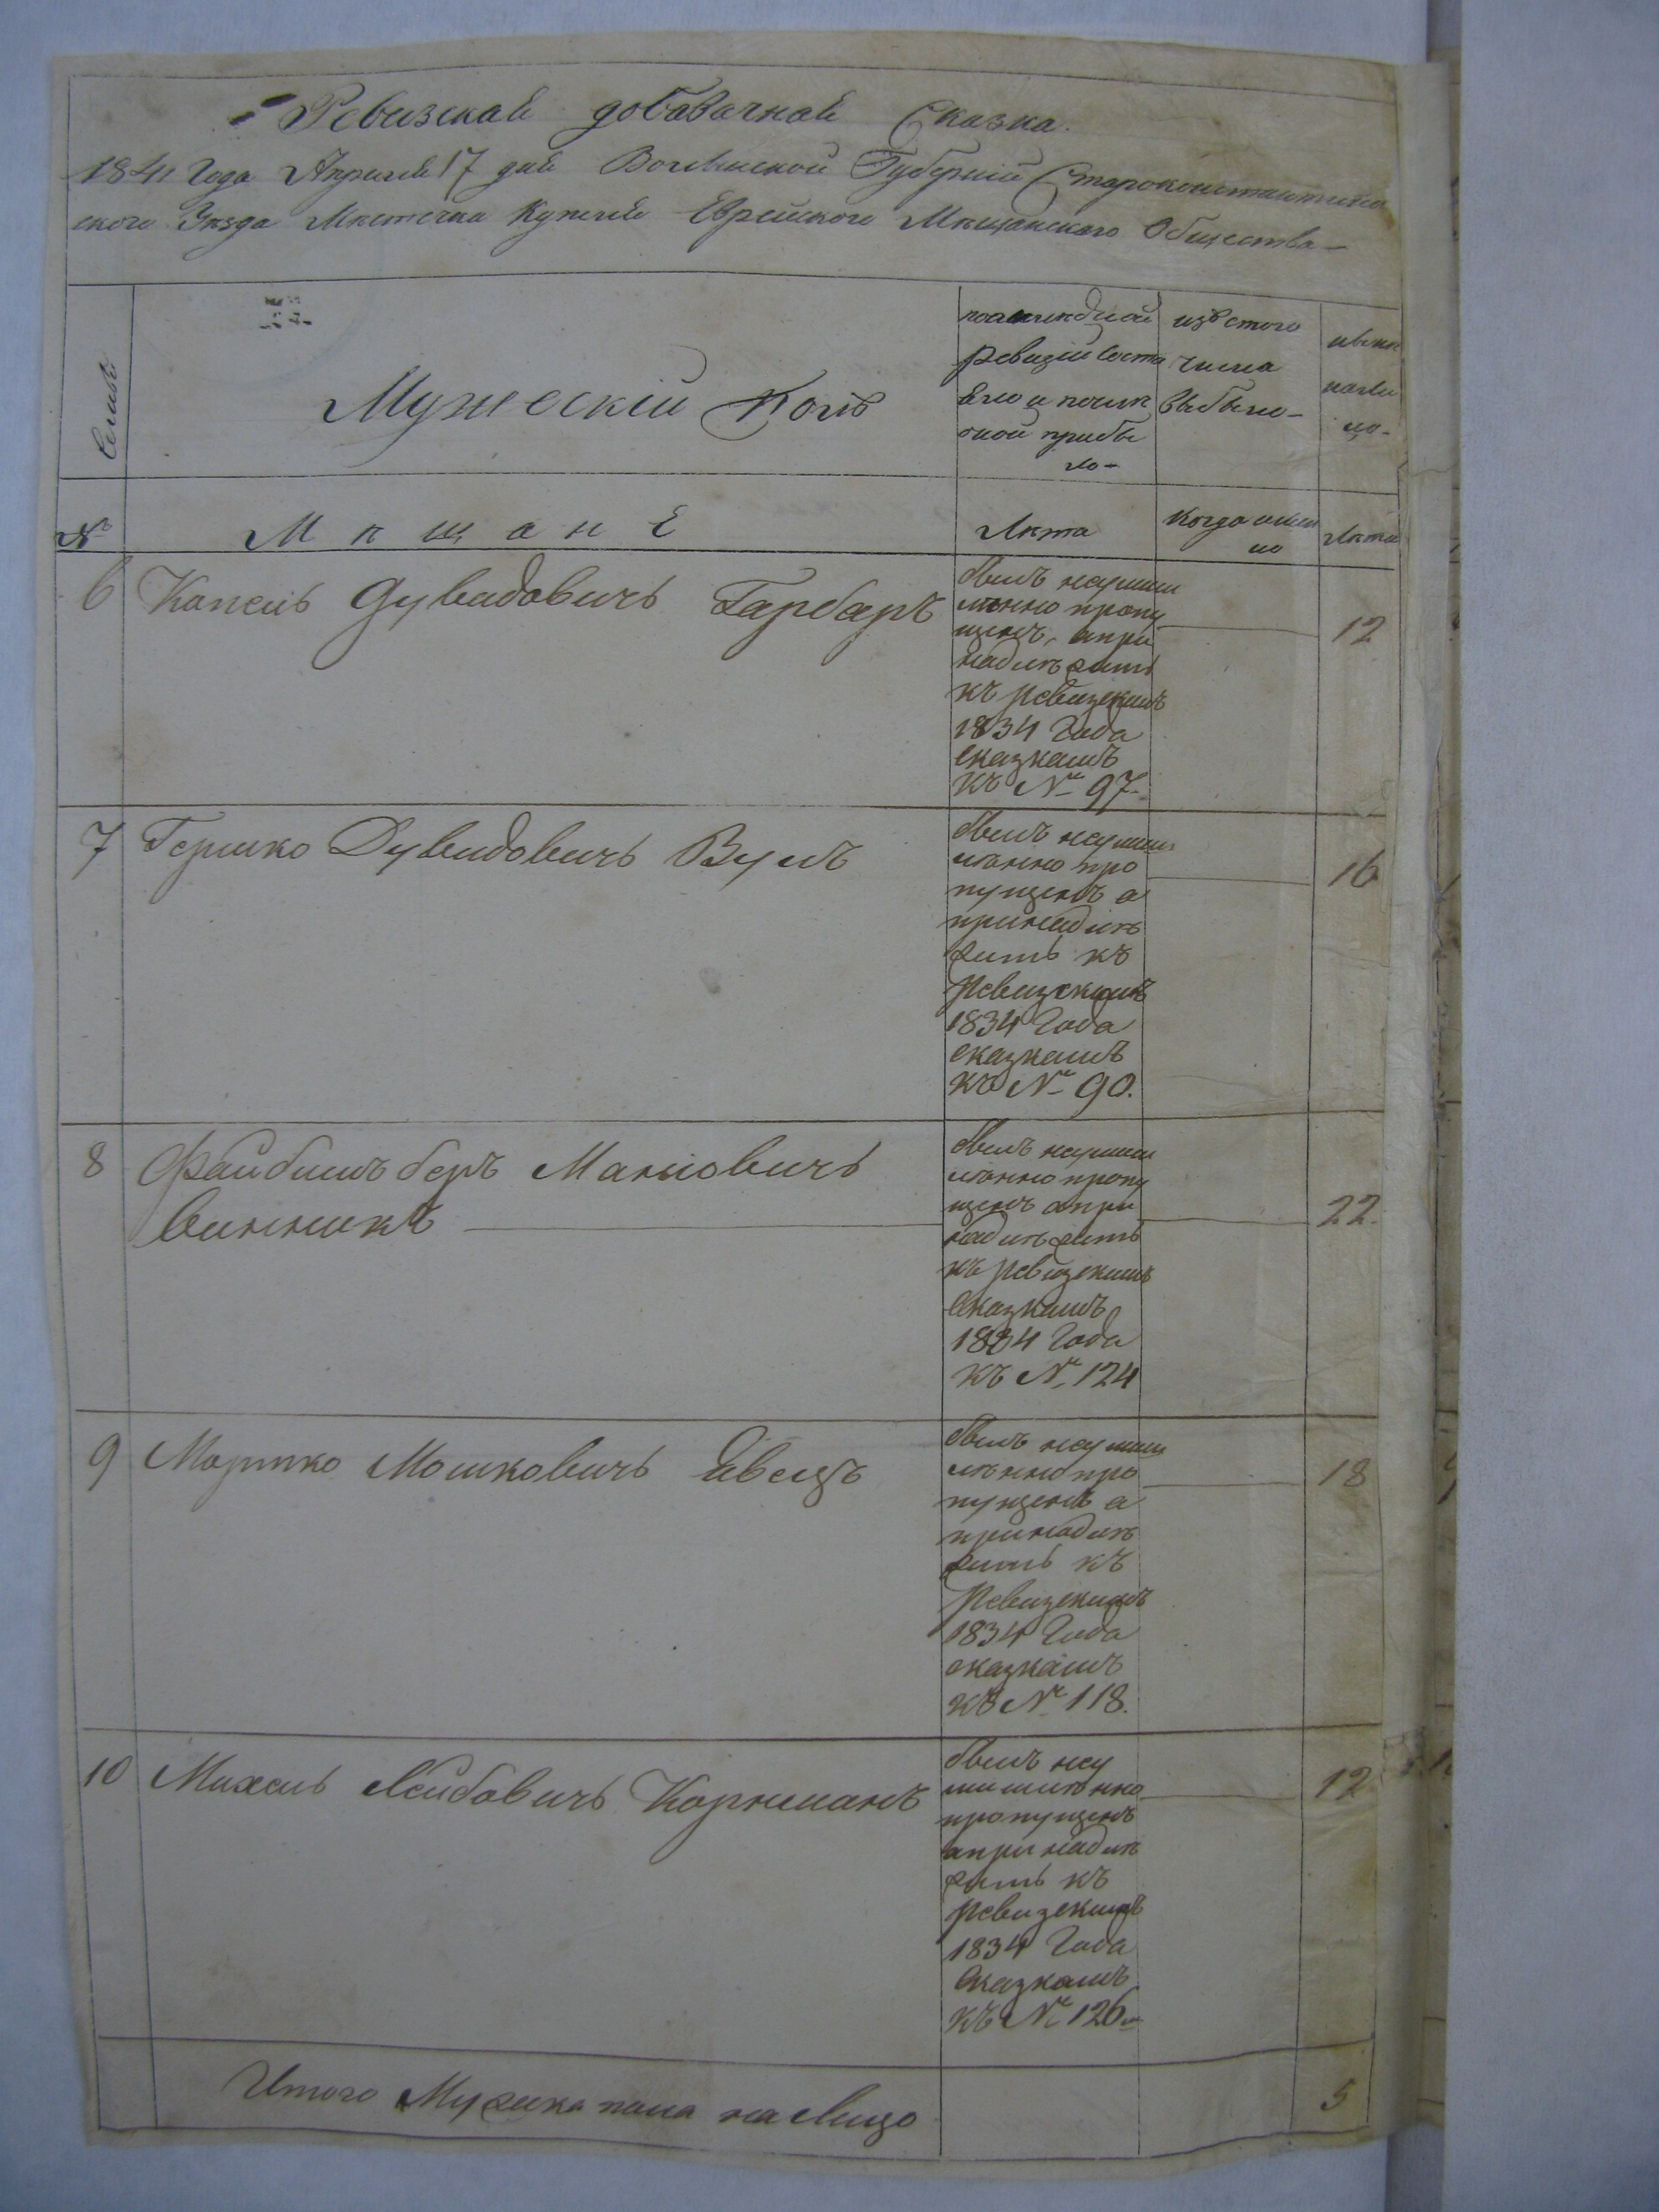 Ревизская добавочная Сказка.
1841 Года Апреля 17 дня Волынской Губернiи Староконстантинов
ского Уѣзда Мѣстечка Купеля Еврейского Мѣщанского Общества
Семьи
Мужескiй полъ
по последней
ревизiи состо
яло и после
оной прибы
ло
изъ того
числа
выбыло
ныне
на ли
цо
№
Мѣщане
Лѣта
Когда имен
но
Лѣта
6 Капель Дувидовичъ Гарбаръ
былъ неумыш
ленно пропу
щенъ, а при
надлежитъ
къ ревизскимъ
1834 Года
сказкамъ
къ № 97
12
7 Гершко Дувидовичъ Вулъ
былъ неумыш
ленно про
пущенъ а
принадле
житъ къ
Ревизскимъ
1834 Года
сказкамъ
къ № 90.
16
8 Файбишъ беръ Маньовичъ
Винникъ
былъ неумыш
ленно пропу
щенъ а при
надлежитъ
къ ревизскимъ
Сказкамъ
1834 Года
къ № 124
22
9 Мошковичъ Швецъ
былъ неумыш
ленно про
пущенъ а
принадле
житъ къ
Ревизскимъ
1834 Года
сказкамъ
къ № 118.
18
10 Михель Лейбовичъ Корнманъ
былъ неу
мышленно
пропущенъ
а принадле
житъ къ
ревизскимъ
1834 Года
Сказкамъ
къ № 126
12
Итого Мужска пола на лицо
5